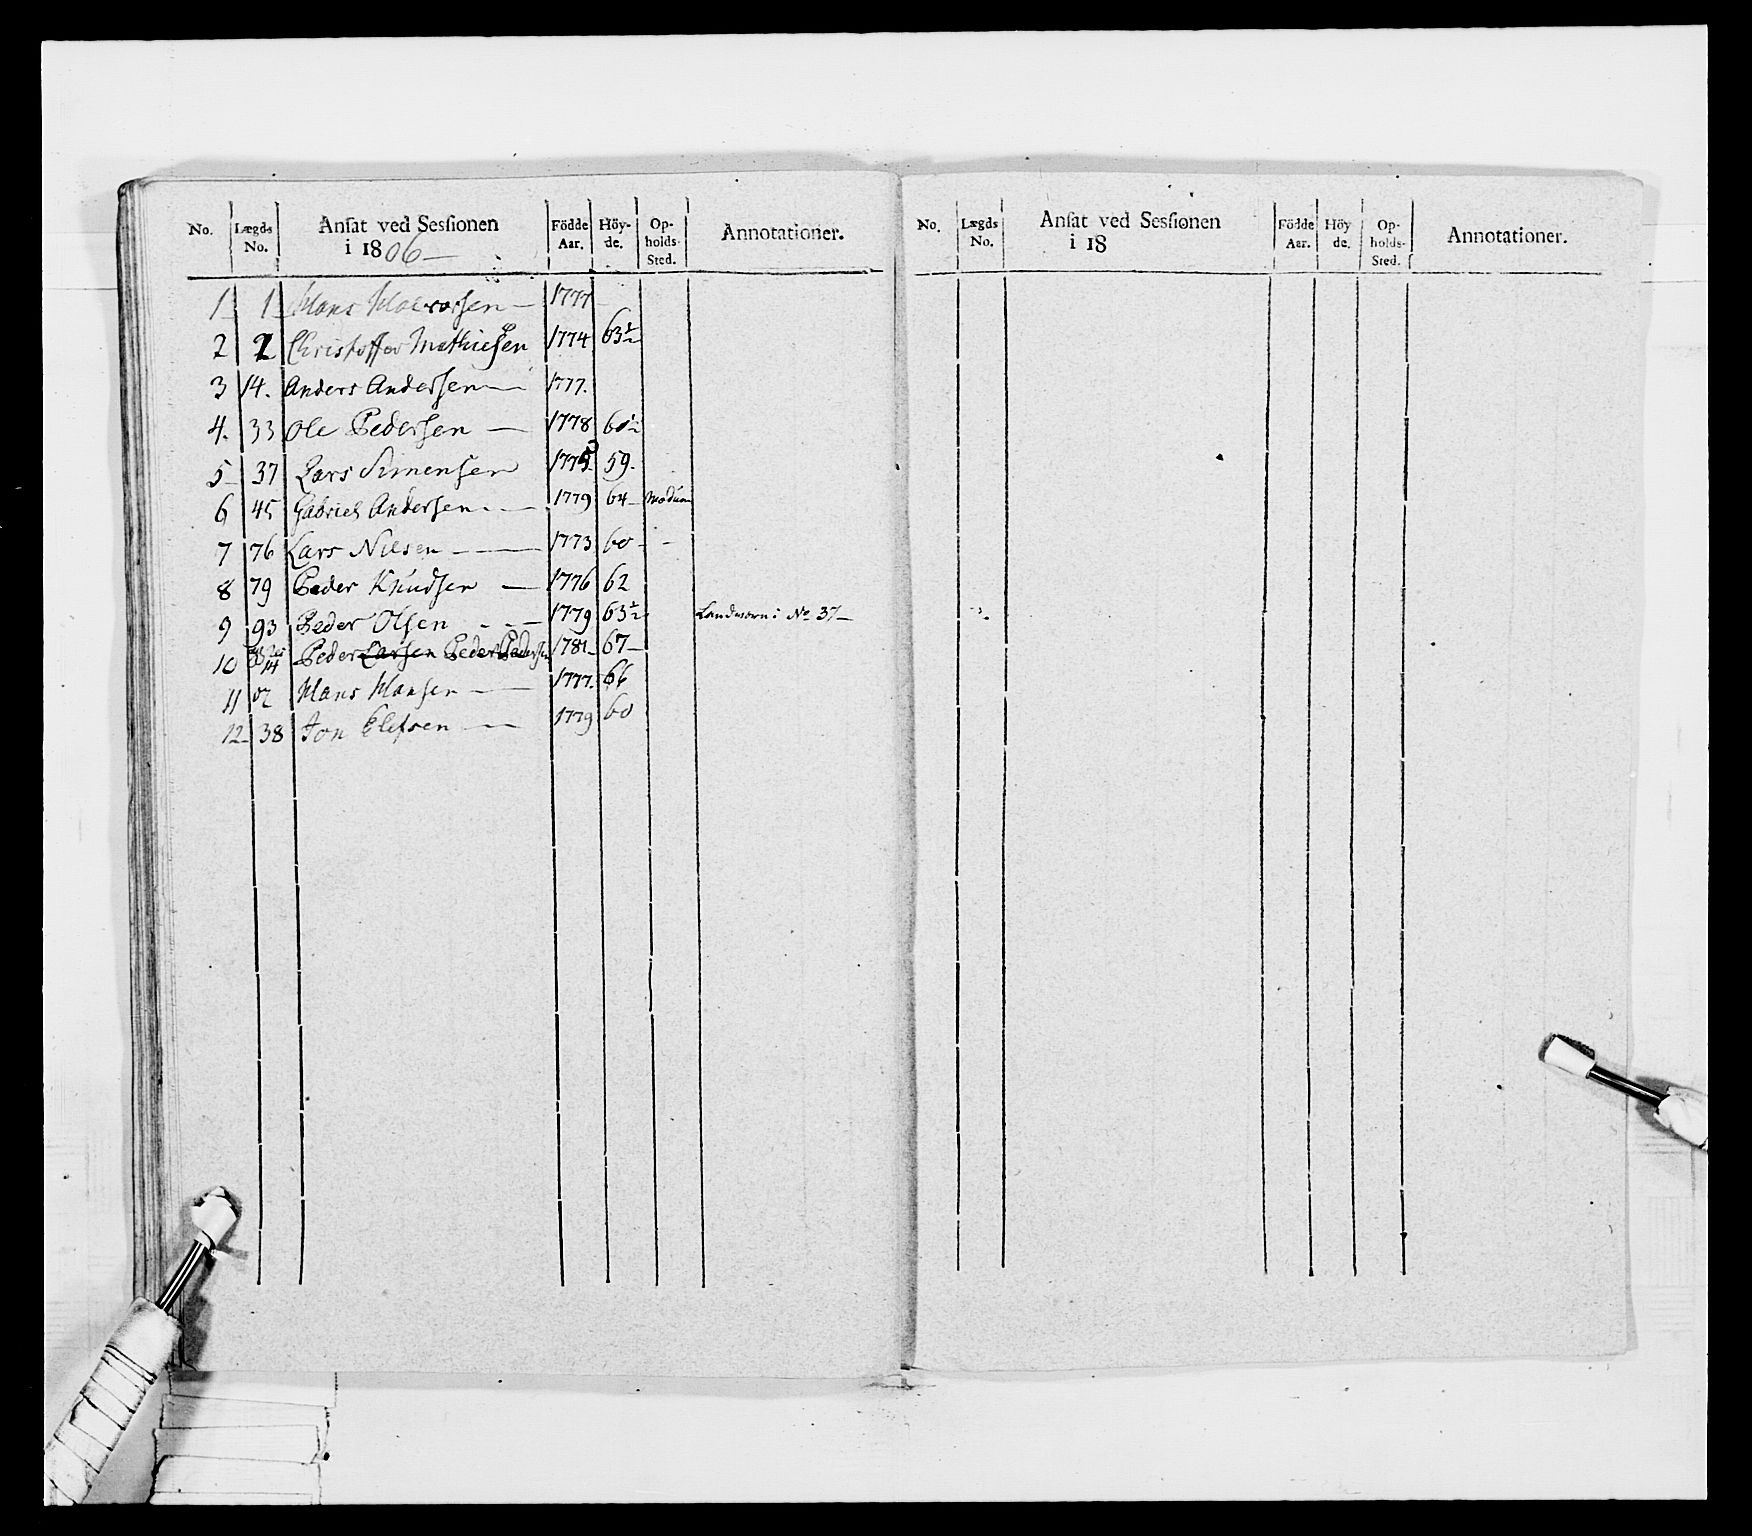 No. Lægds No. Ansat ved Sessionen i 1806 Födde Aar. Höy-de. Op-holds-Sted. Annotationer.
1 1 Hans Halvorsen 1777
2 2 Christoffer Mathiesen 1774 63½
3 14. Anders Andersen 1777.
4. 33 Ole Pedersen 1778
5 37 Lars Simensen 59.
6 45 Gabriel Andersen 1779 64 Modum
7 76 Lars Nilsen 1773 60
8 79 Peder Knudsen 1776 62
9 93 Peder Olsen 1779 63½ Landværn i No 37
10 14 Peder Larsen Peder Pedersen 1781 67
11 Hans Hansen 1777. 66
12 38 Jon Elefsen 1779 60
No. Lægds No. Ansat ved Sessionen i 18 Födde Aar. Höy de. Op-holds-Sted. Annotationer.